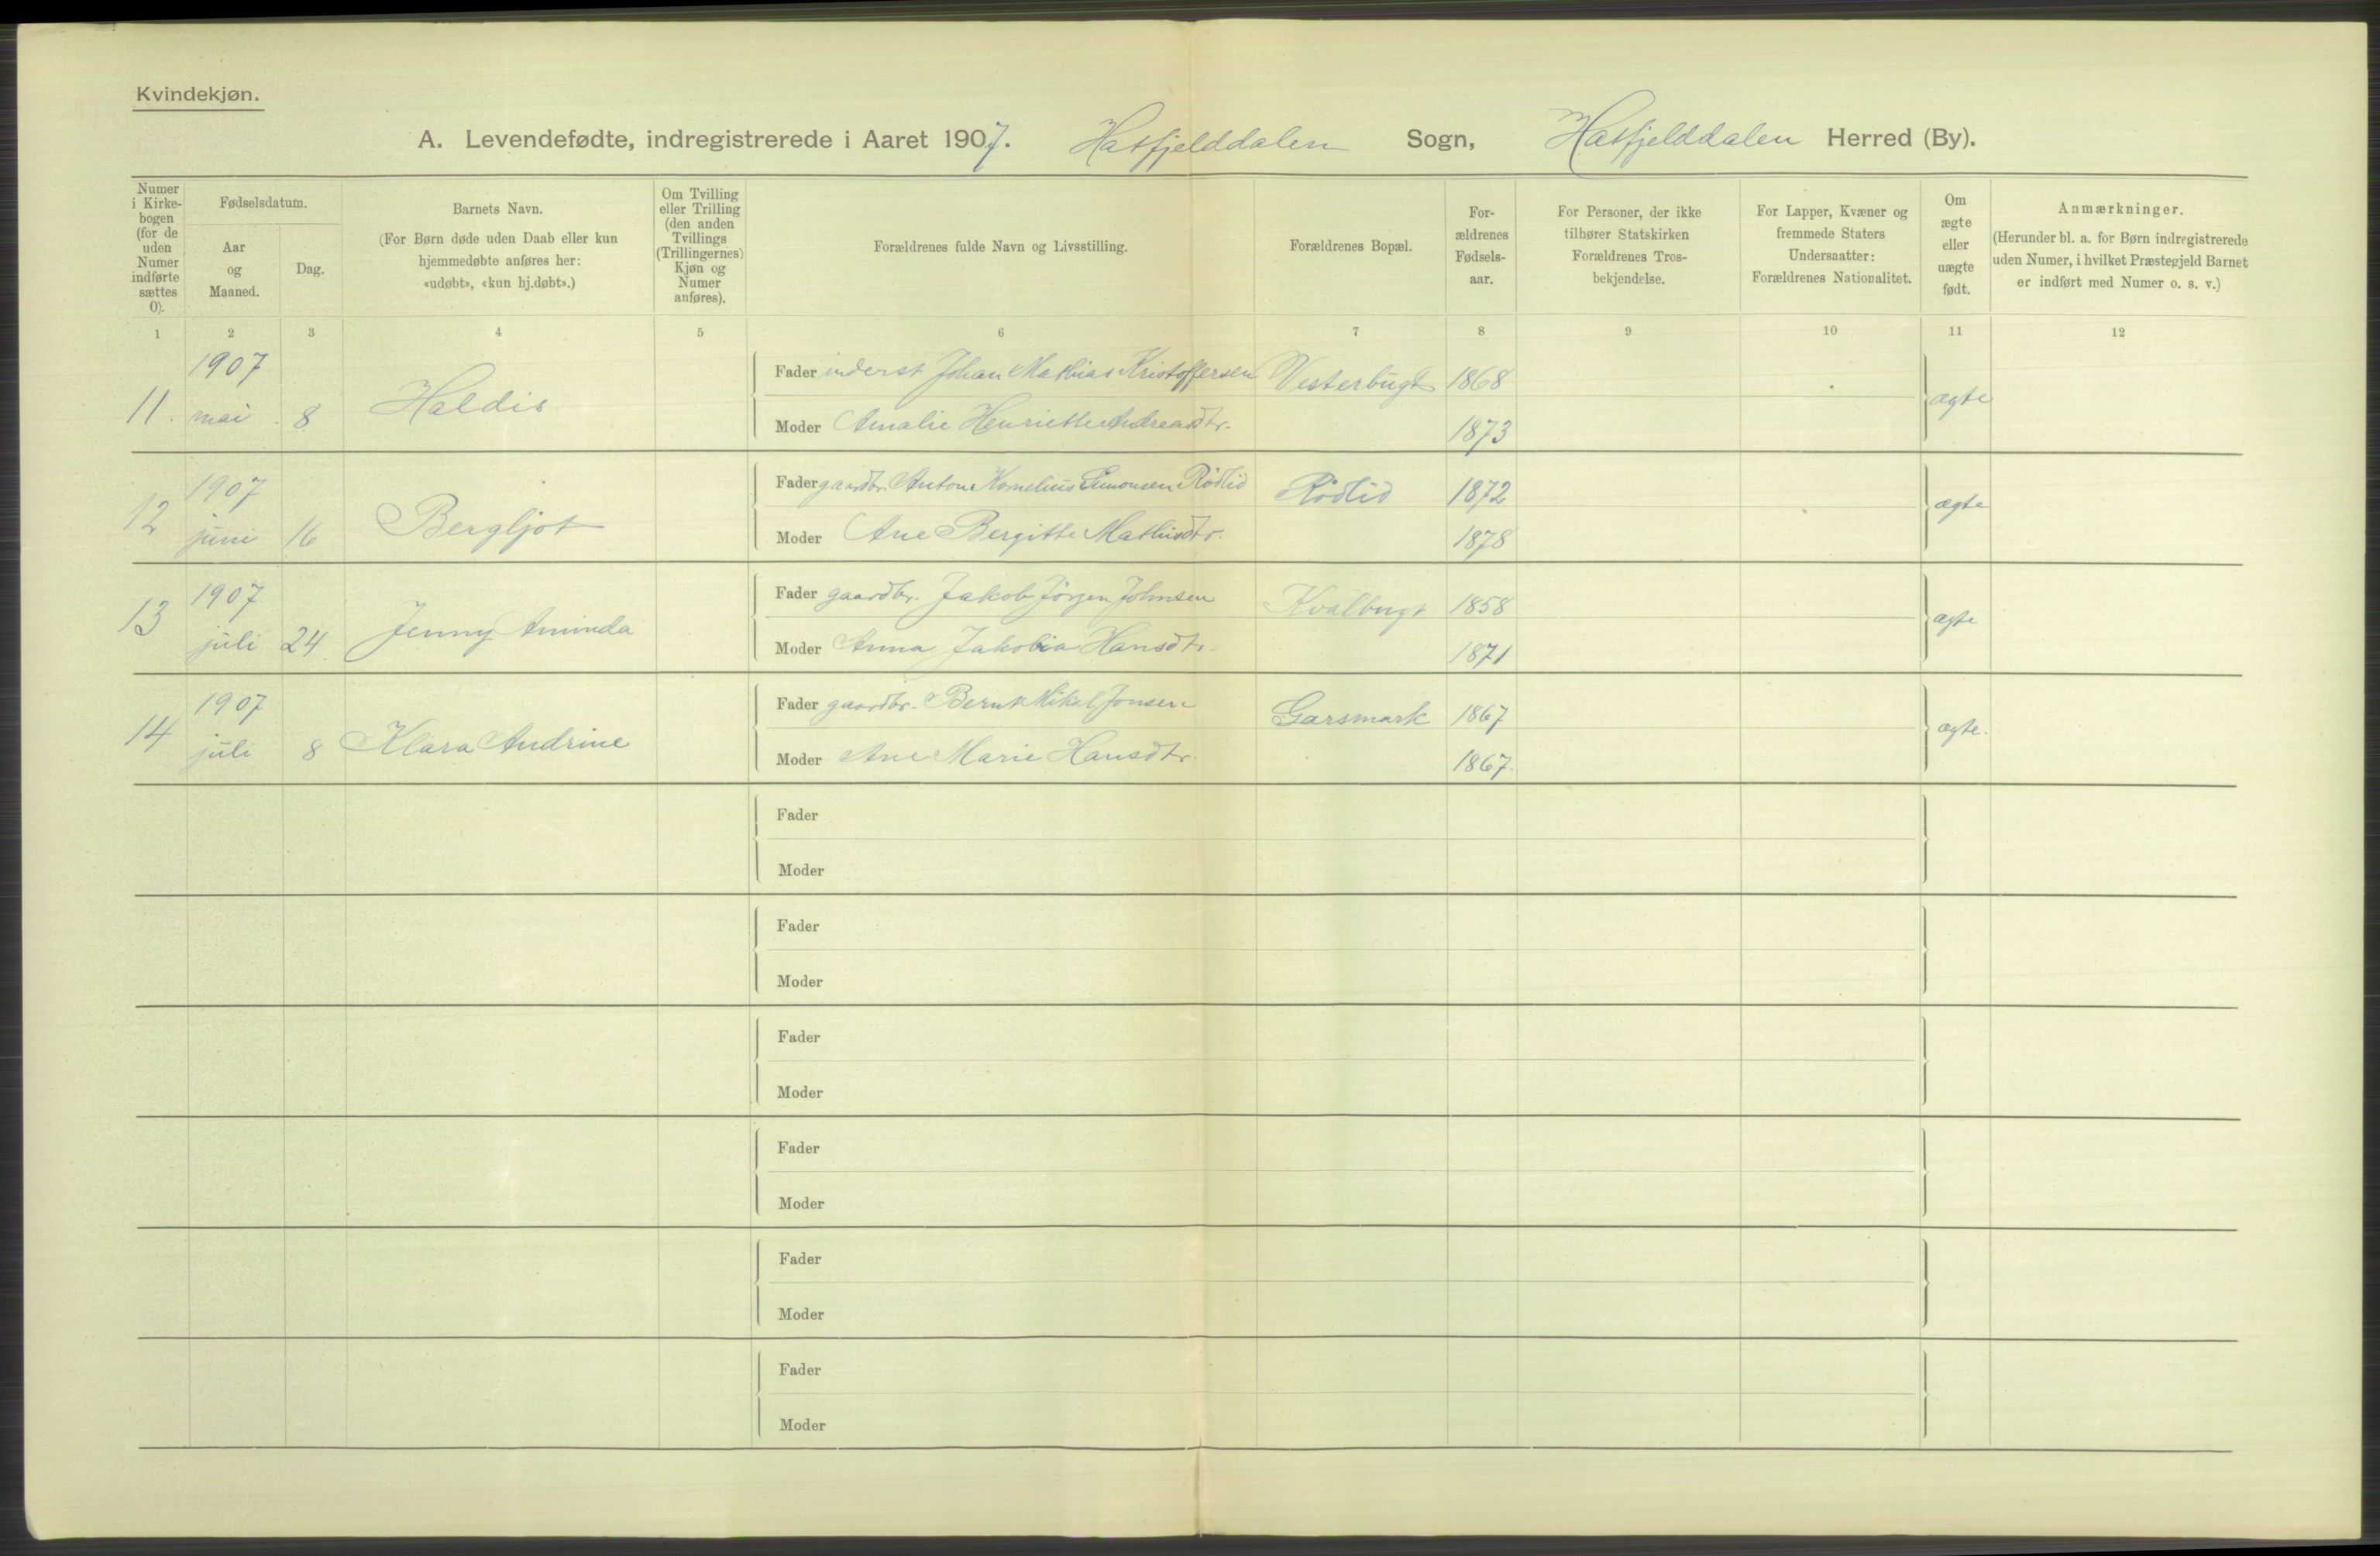 Kvindekjøn.
A. Levendefødte, indregistrerede i Aaret 1907. Hatfjelddalen Sogn, Hatfjelddalen Herred (By).
Numer i Kirke-bogen (for de uden Numer indførte sættes 0).
Fødselsdatum.
Aar og Maaned.
Dag.
Barnets Navn.
(For Børn døde uden Daab eller kun
hjemmedøbte anføres her:
«udøbt», «kun hj.døbt».)
Om Tvilling
eller Trilling
(den anden
Tvillings
(Trillingernes)
Kjøn og
Numer
anføres).
Forældrenes fulde Navn og Livsstilling.
Forældrenes Bopæl.
For-
ældrenes
Fødsels-
aar.
For Personer, der ikke
tilhører Statskirken
Forældrenes Tros-
bekjendelse.
For Lapper, Kvæner og
fremmede Staters
Undersaatter:
Forældrenes Nationalitet.
Om
ægte
eller
uægte
født.
Anmærkninger.
(Herunder bl. a. for Børn indregistrerede
uden Numer, i hvilket Præstegjeld Barnet
er indført med Numer o. s. v.)
1 2 3 4 5 6 7 8 9 10 11 12
1907 Fader inderst Johan Mathias Kristoffersen Vesterbugt 1868
11. mai 8 Haldis ægte
Moder Amalie Henriette Andreasdtr. 1873
1907 Fader gaardbr. Anton Kornelius Simonsen Rödlid Rödlid 1872
12 juni 16 Bergljot ægte
Moder Ane Bergitte Mathisdtr. 1878
1907 Fader gaardbr. Jakob Jörgen Johnsen Kvalbugt 1858
13 juli 24 Jenny Aminda ægte
Moder Anna Jakobia Hansdtr. 1871
1907 Fader gaardbr. Bernt Mikal Jonsen Garsmark 1867
14 juli 8 Klara Andrine ægte.
Moder Ane Marie Hansdtr. 1867.
Fader
Moder
Fader
Moder
Fader
Moder
Fader
Moder
Fader
Moder
Fader
Moder